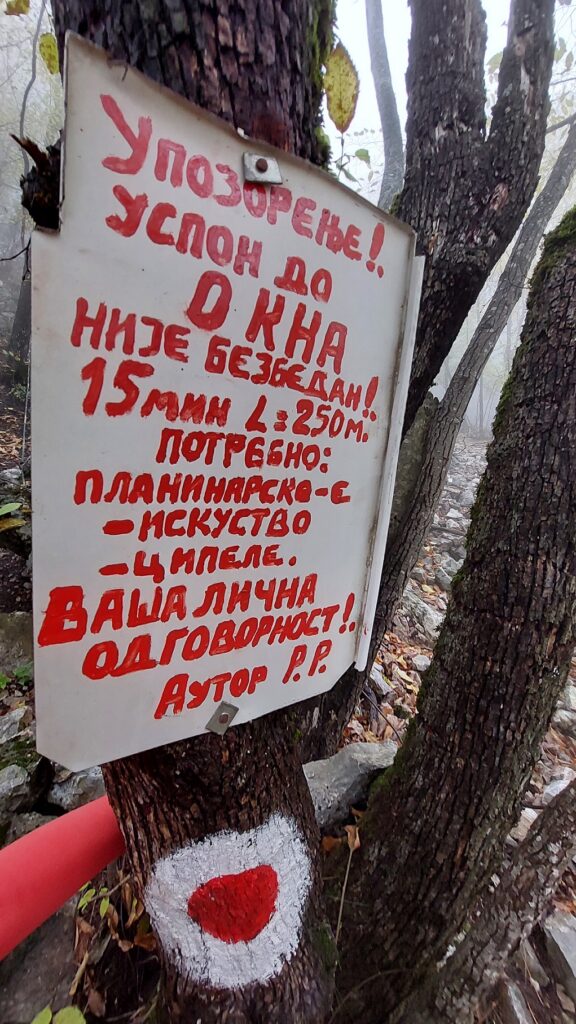 Упозорење!
Успон до
ОКНА
НИЈЕ БЕЗБЕДАН!
15мин L=250м.
ПОТРЕБНО:
ПЛАНИНАРСКО-Е
-ИСКУСТВО
-ЦИПЕЛЕ.
ВАША ЛИЧНА
ОДГОВОРНОСТ!
Аутор Р.Р.